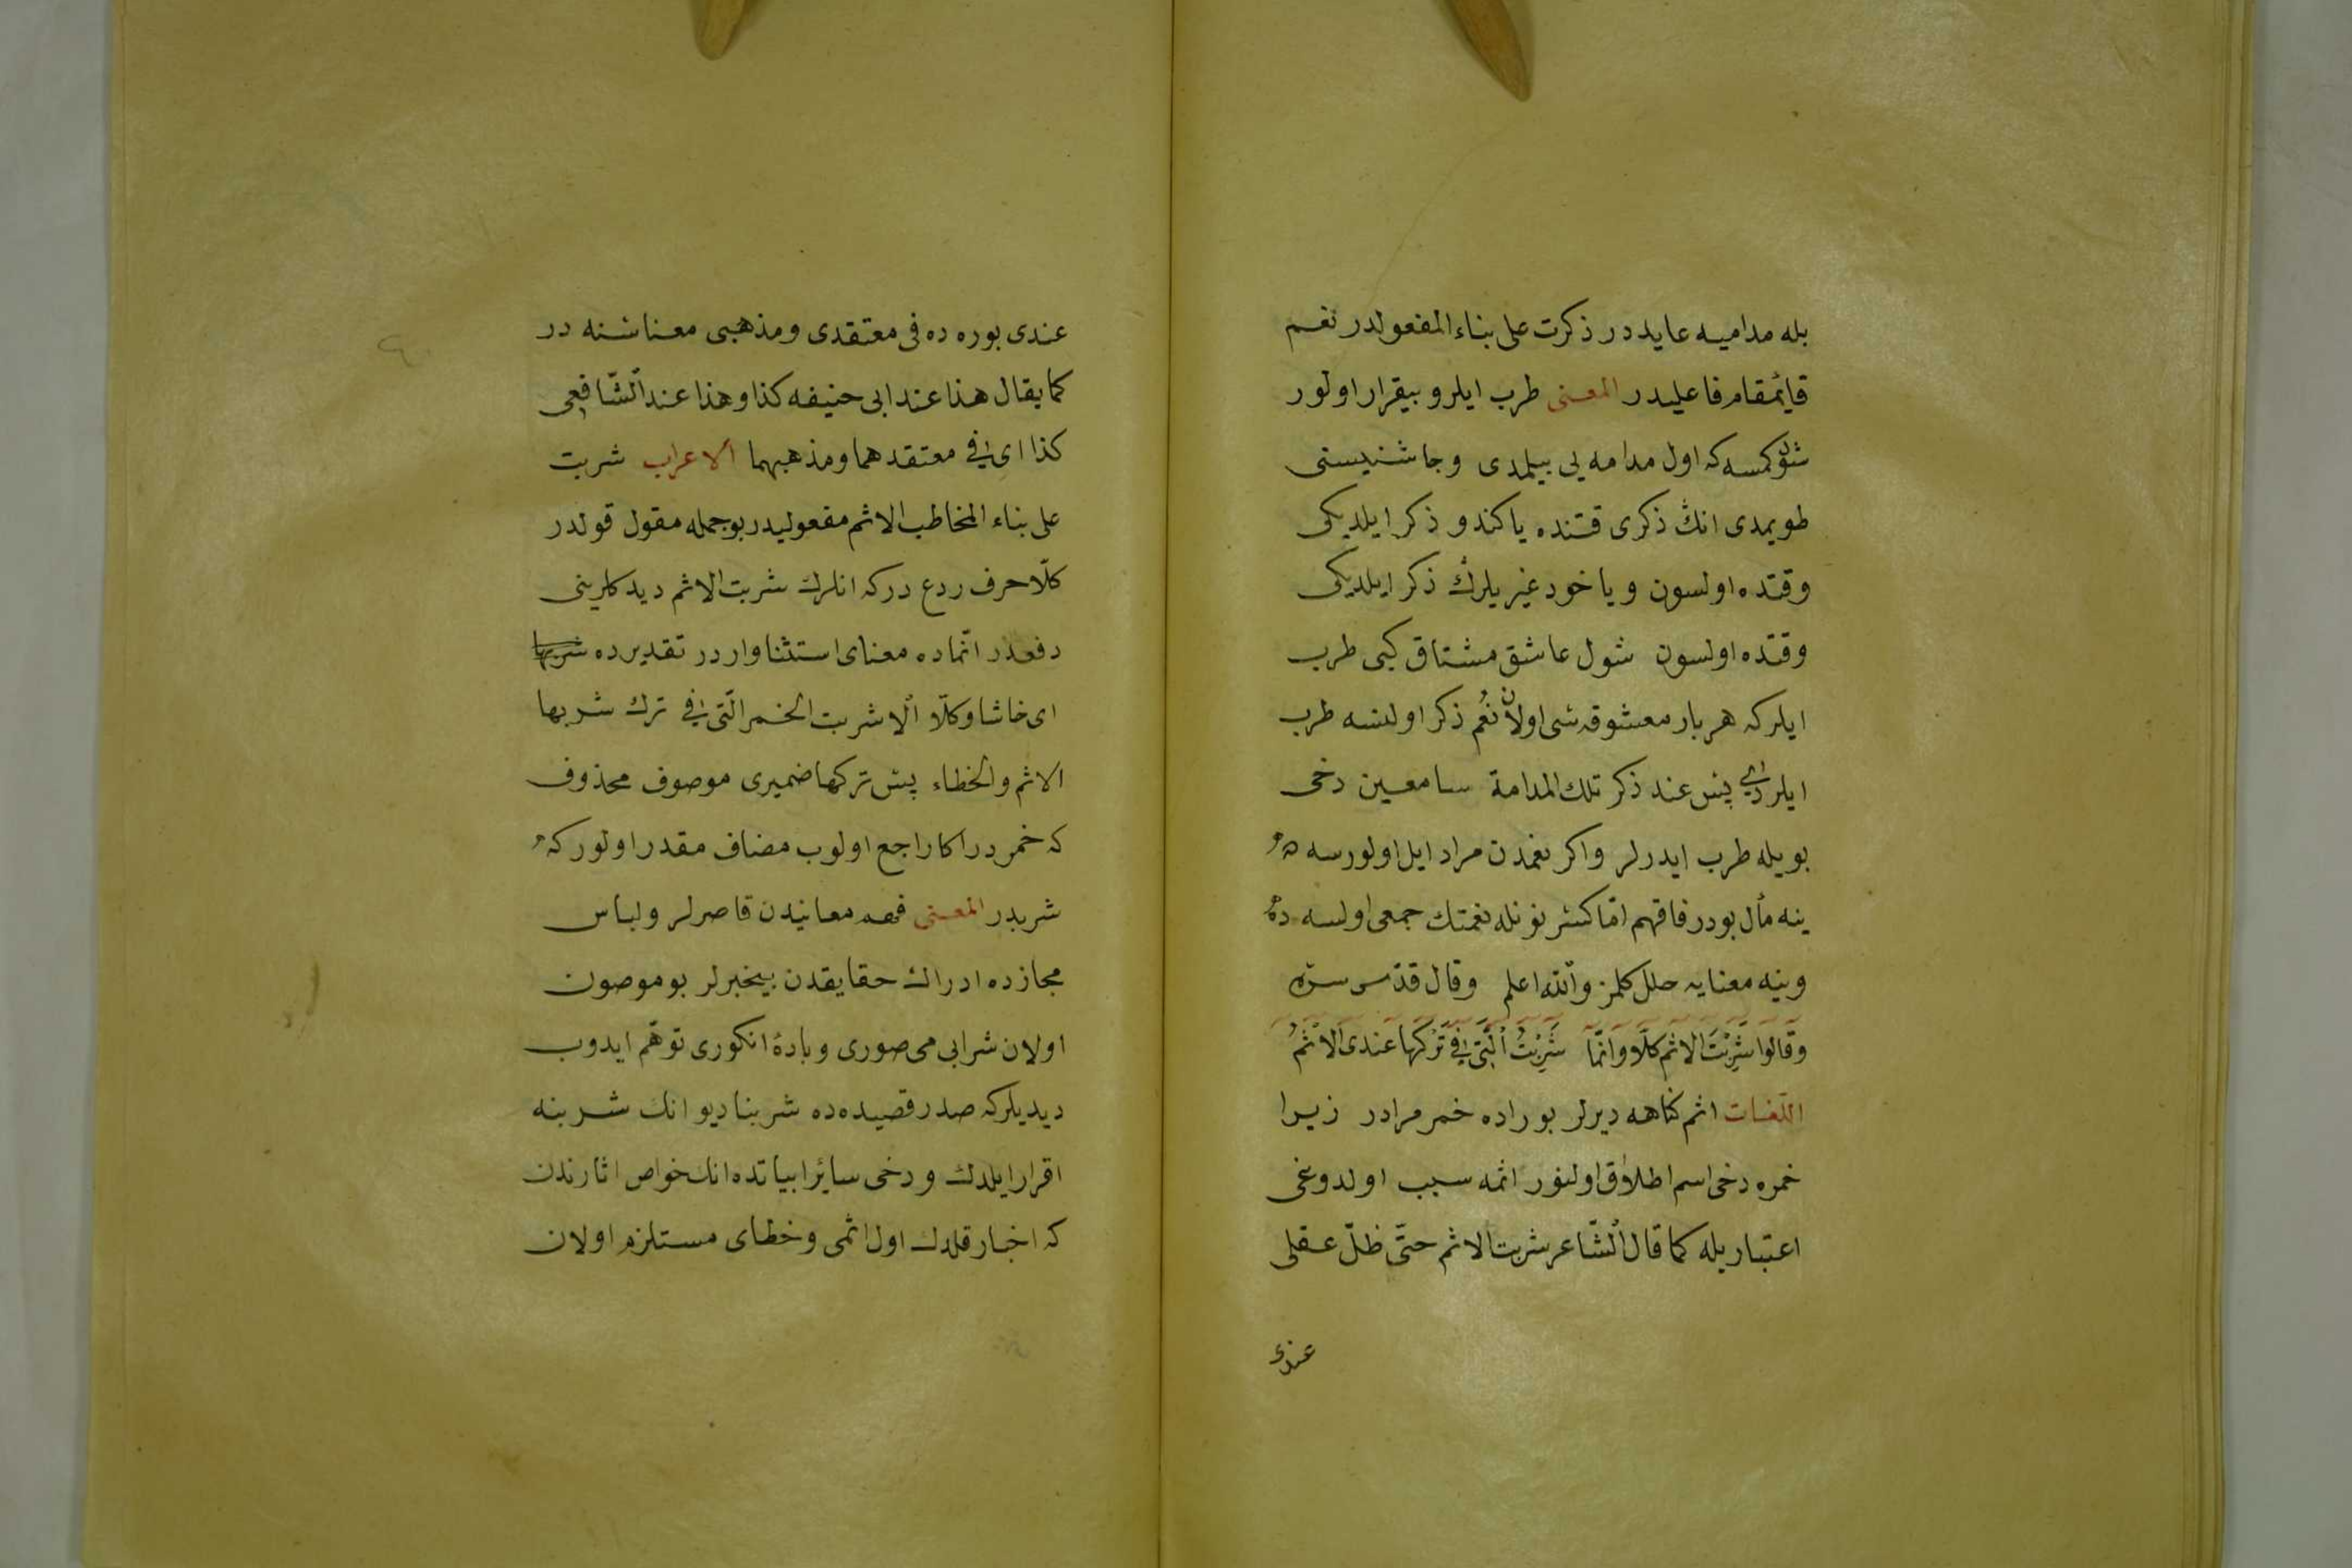 بله مداميه عايددر ذكرت على بناء المفعولدر نغم
قايمقام فاعليدر المعنى طرب ايلر و بيقرار اولور
شول كمسه كه اول مدامه يى بيلمدى و جاشنيسنى
طويمدى انڭ ذكرى قتنده يا كندو ذكر ايلديكى
وقتده اولسون و يا خود غيريلرڭ ذكر ايلديكى
وقتده اولسون شول عاشق مشتاق كبى طرب
ايلر كه هر بار معشوقه سى اولان نُعُم ذكر اولنسه طرب
ايلر پس عند ذكر تلك المدامة سامعين دخى
بويله طرب ايدرلر و اكر نغمدن مراد ايل اولورسه
ينه مآل بودر فافهم امّا كسر نونله نغمتك جمعى اولسه ده
وينه معنايه خلل كلمز واللّه اعلم وقال قدّس سرّه
وَقَالُوا شَرِبْتَ الاثم كلَّا وَانَّمَا شَرِبْتُ الَّتى فى تَرْكِهَا عندىَ الاثْمُ
اللّغات اثم كناهه ديرلر بوراده خمر مرادر زيرا
خمره دخى اسم اطلاق اولنور اثمه سبب اولدوغى
اعتباريله كما قال الشّاعر شربت الاثم حتّى ظلّ عقلى
عندى
عندى بوره ده فى معتقدى و مذهبى معناسنه در
كما يقال هذا عند ابى حنيفه كذا وهذا عند الشّافعى
كذا اى فى معتقدهما ومذهبهما الاعراب شربت
على بناء المخاطب الاثم مفعوليدر بو جمله مقول قولدر
كلّا حرف ردع در كه انلرك شربت الاثم ديدكلرينى
دفعدر انّماده معناى استثنا واردر تقديرده شربها
اى حاشا وكلّا الا شربت الخمر الّتى فى ترك شربها
الاثم والخطاء پس تركها ضميرى موصوف محذوف
كه خمردر اكا راجع اولوب مضاف مقدر اولور كه
شربدر المعنى فهم معانيدن قاصرلر و لباس
مجازده ادراك حقايقدن بيخبرلر بو موصون
اولان شرابى مى صورى و بادۀ انكورى توهّم ايدوب
ديديلر كه صدر قصيده ده شربنا ديو انك شربنه
اقرار ايلدك و دخى سائر ابياتده انك خواص اثارندن
كه اخبار قلدك اول اثمى و خطاى مستلزم اولان